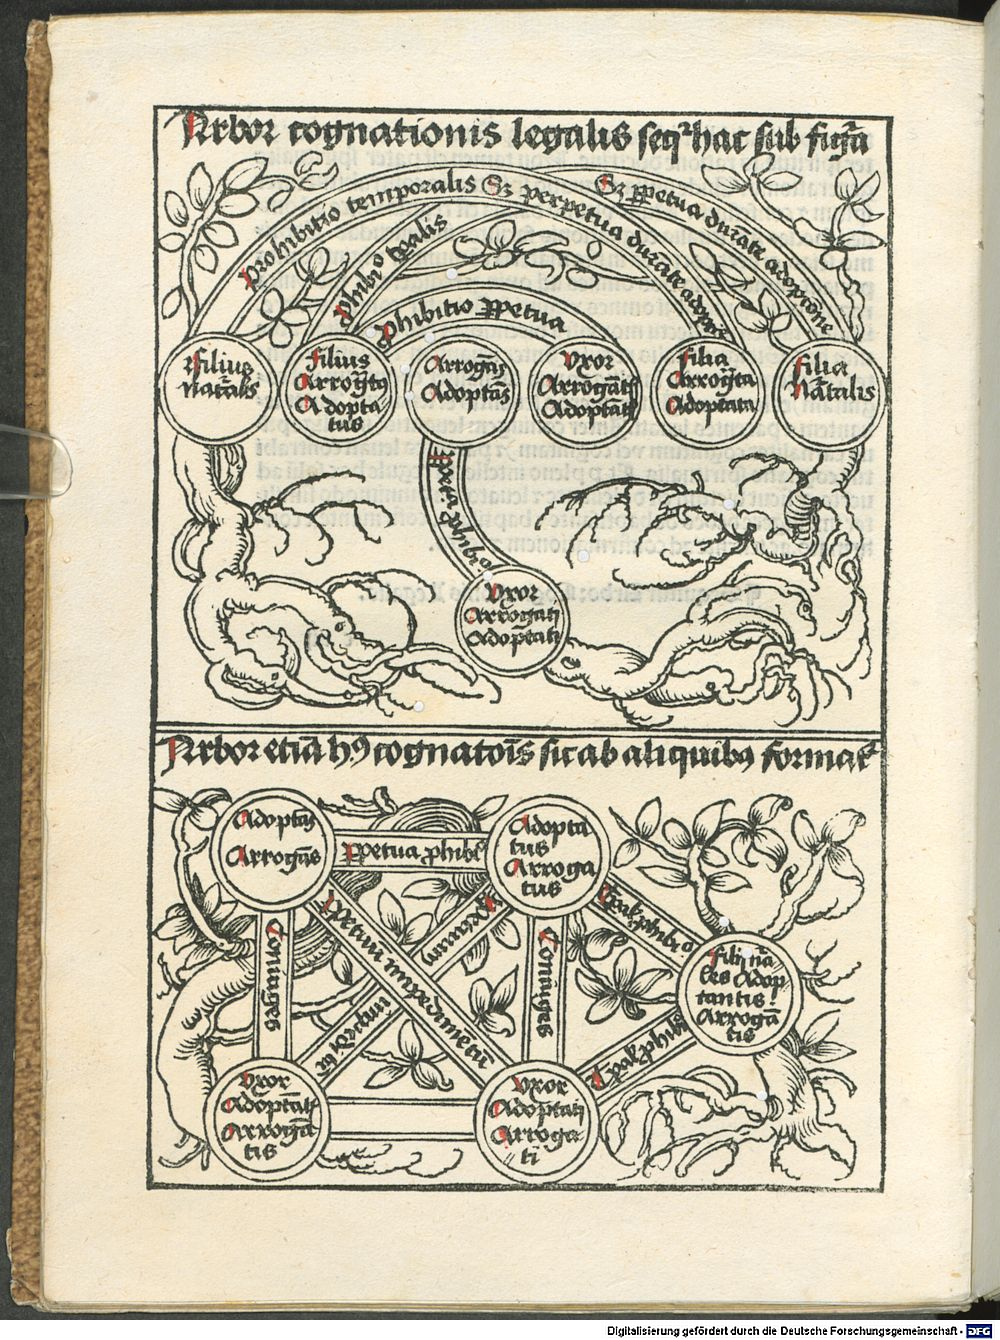 Arbor cognationis legalis seqr hac sub figa
Prohibitio temporalis Sz perpetua durate adoptoe
Sz ppetua durate adoptione
phibio tpalis
phibitio ppetua
Filius
Natalis
Filius
Arrogatg
Adopta
tus
Arrogas
Adoptas
Vxor
Arrogatis
Adoptatis
Filia
Arrogata
Adoptata
Filia
Natalis
ppetua phibio
Vxor
Arrogati
Adoptati
Arbor etia hg cognatois sic ab aliquibg formaf
Adoptas
Arrogas
ppetua phibi
Adopta
tus
Arroga
tus
Coniuges
ppetuum impedimetu
ppetuum
impedimetu
Coniuges
Tpalz phibio
Tpalz phibi
Filij na
les Adop
tantis
Arroga
tis
Vxor
Adoptatis
Arroga
tis
Vxor
Adoptati
Arroga
ti
Digitalisierung gefördert durch die Deutsche Forschungsgemeinschaft - DFG